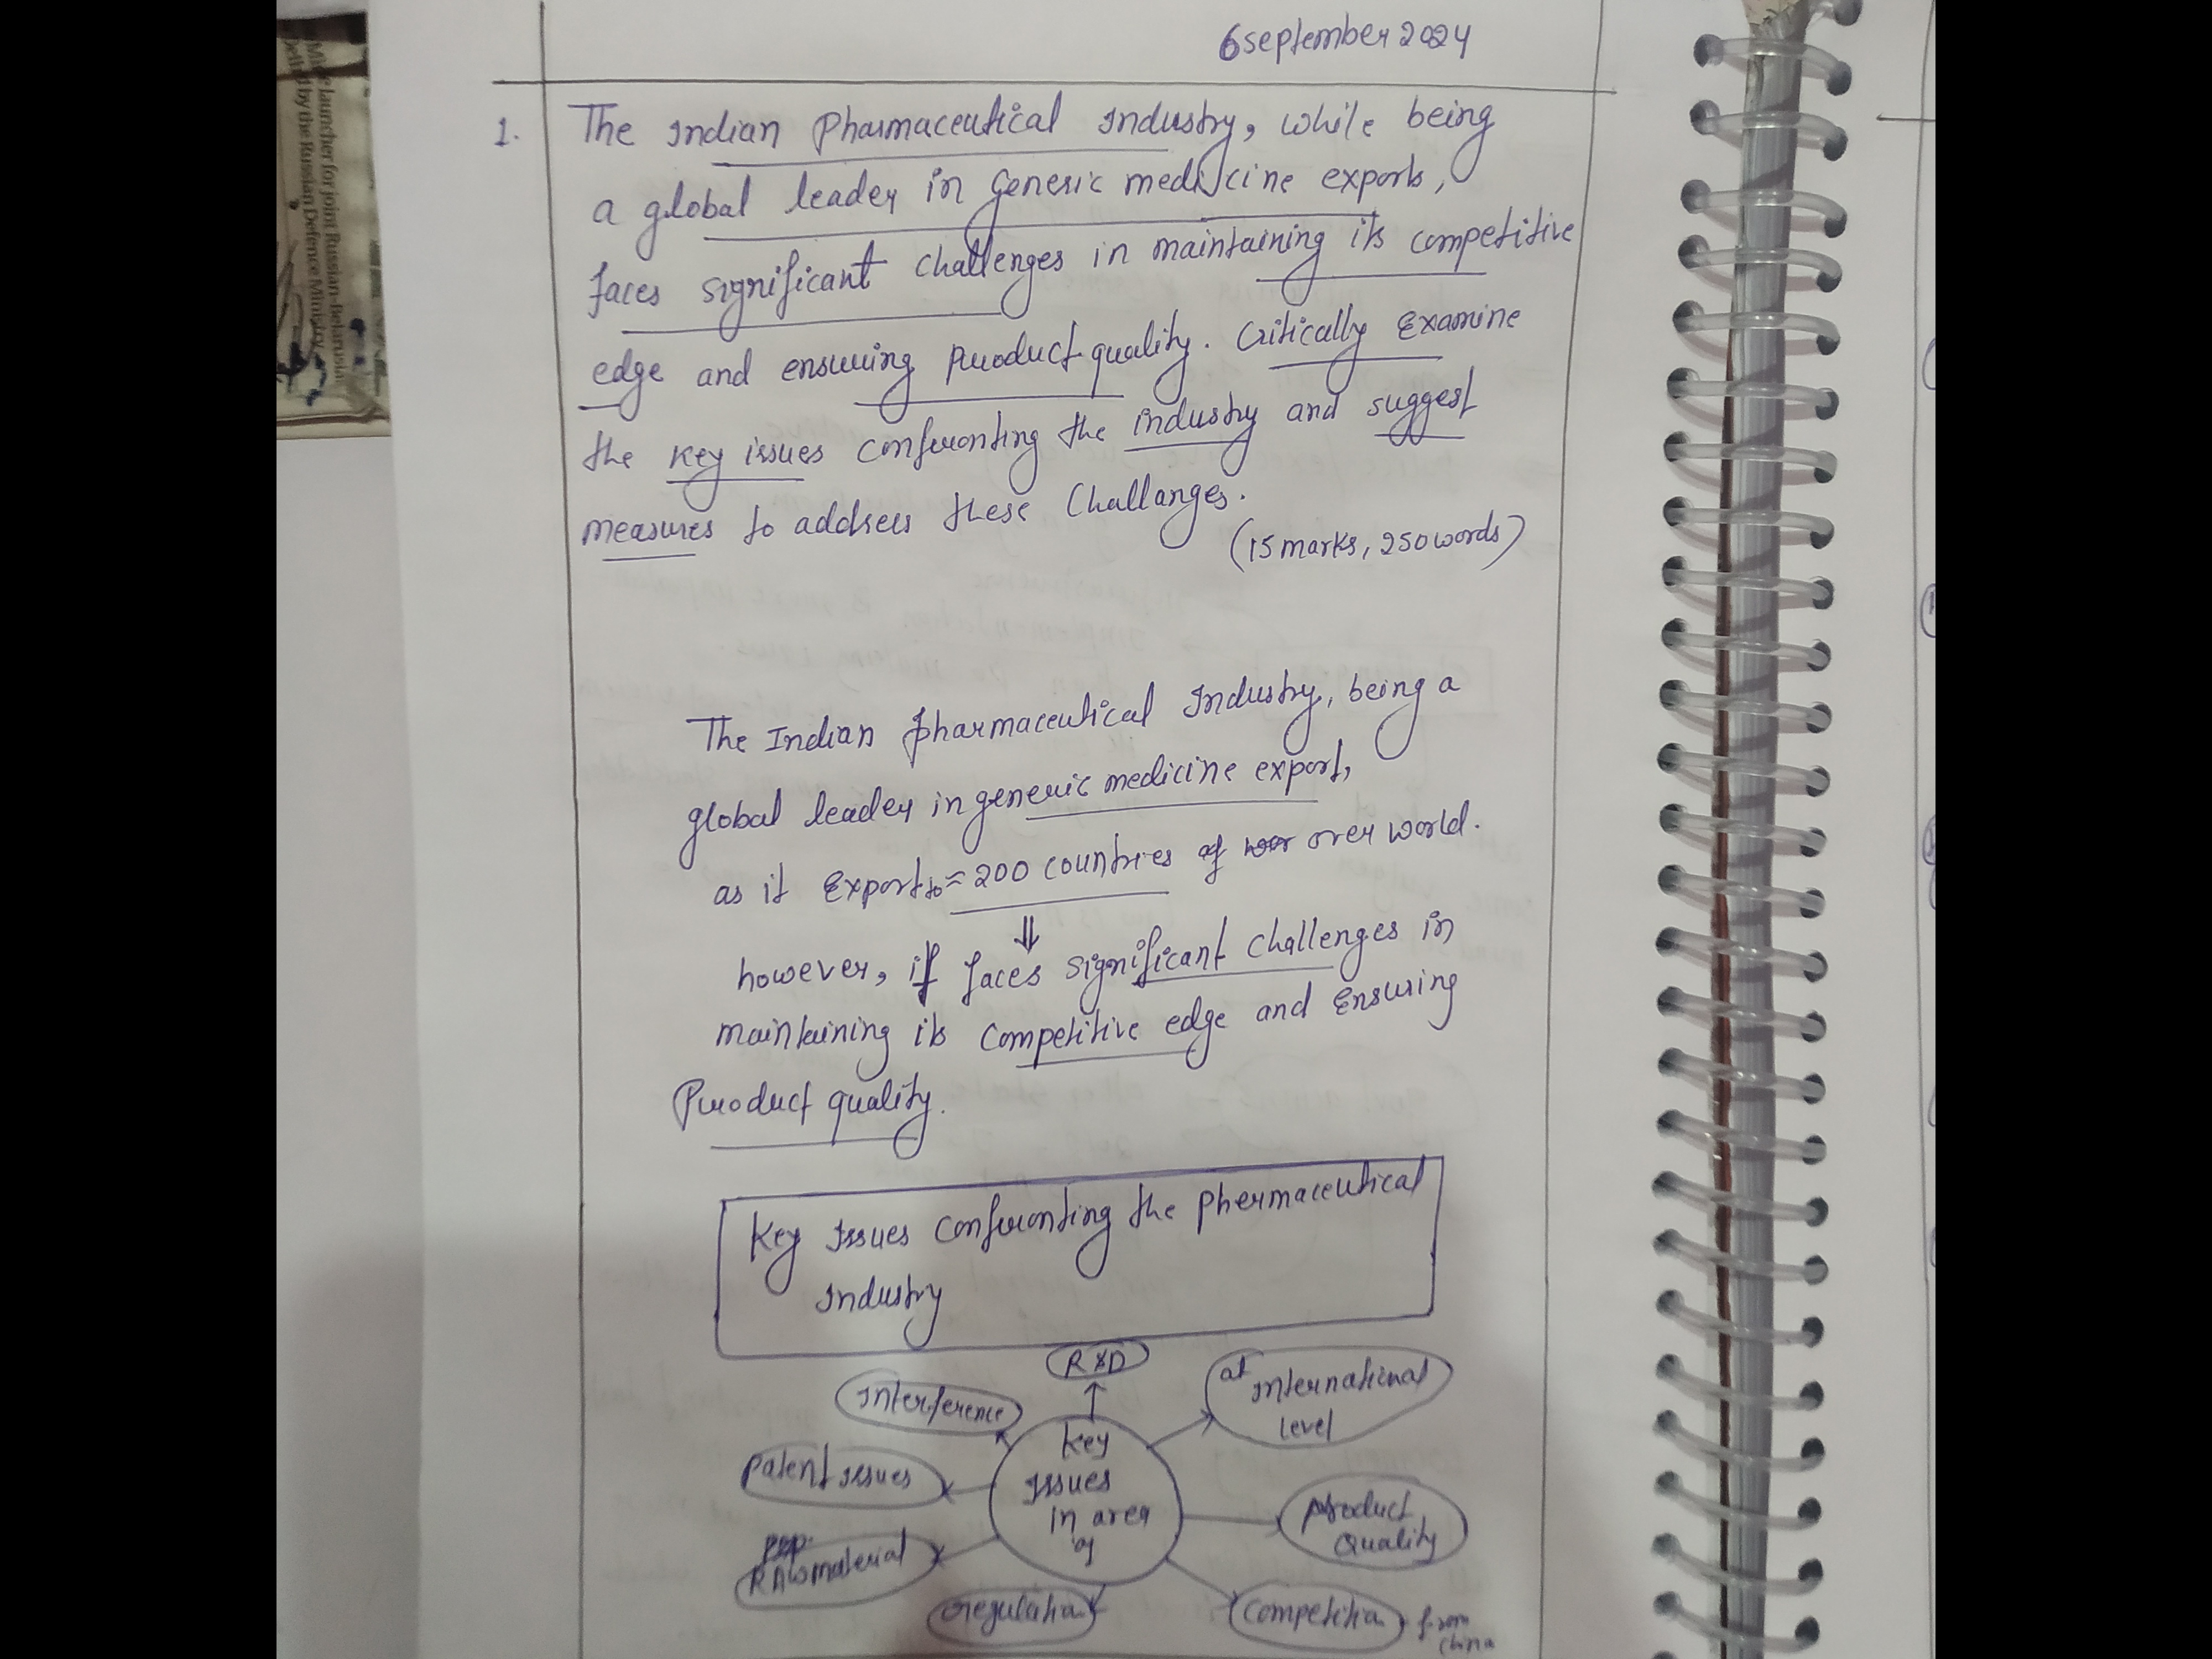 6 September 2024
1. The Indian Pharmaceutical Industry, while being
a global leader in Generic medicine exports,
faces significant challenges in maintaining its competitive
edge and ensuring product quality. Critically Examine
the key issues confronting the industry and suggest
measures to address these Challanges.
(15 marks, 250 words)
The Indian pharmaceutical Industry, being a
global leader in generic medicine export,
as it Export to ≈ 200 countries over world.
⇓
however, it faces significant challenges in
maintaining its competitive edge and Ensuring
Product quality.
Key Issues Confronting the phermaceutical
Industry
R&D
at International
level
Interference
Key
Issues
in area
of
Patent issues
Product
Quality
RAW material
regulation
Competition → from
China
Mine launcher for joint Russian-Belarusian
by the Russian Defence Ministry